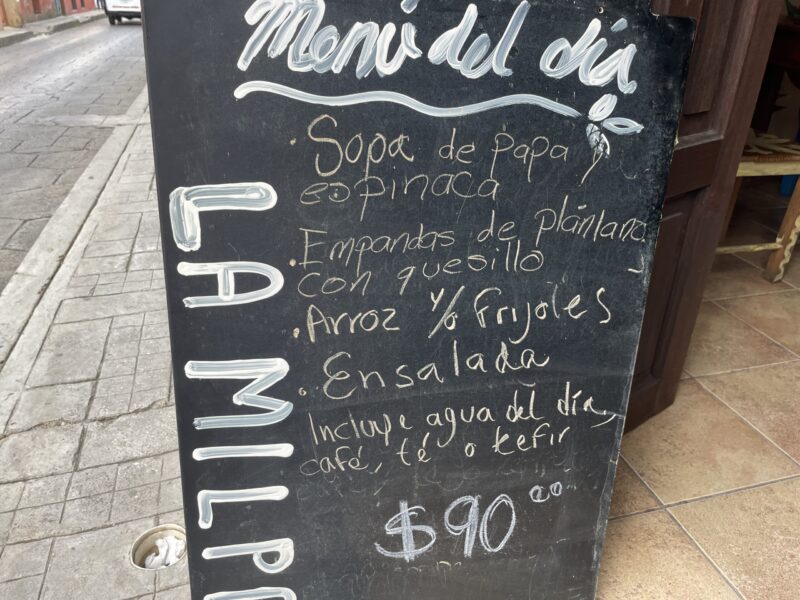 Menú del día
Sopa de papa y
espinaca
Empandas de plátano
con quesillo
Arroz y/o Frijoles
Ensalada
Incluye agua del día,
café, té o kefir
$90.00
LA MILP